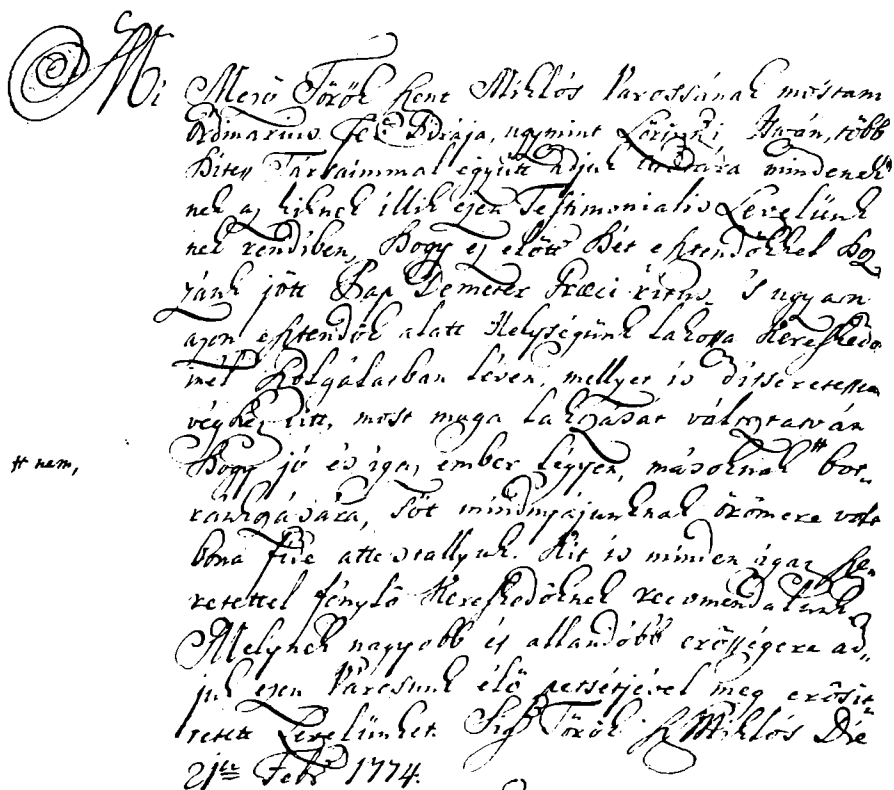 Mi Mező Török Szent Miklós Várossának mostani
Ordinarius Fő Birája, ugymint Lőrintzi Iván, több
Hites Társaimmal együtt adjuk tudtára mindenek
nek az kiknek illik ezen Testimonialis Levelünk
nek rendiben, hogy ez előtt hét esztendőkkel hoz
zánk jött Pap Demeter Græci ritus, 's ugyan
azon esztendők alatt Helységünk lakossa Kereskedő
nél szolgálatban lévén, mellyet is ditséretessen
végben vitt, most maga lakozását változtatván
Hogy jó és igaz ember légyen, másoknak # bot„
# nem,
ránkozására, sőt mindnyájunknak örömere volt
bona fide attestallyuk. Kit is minden igaz sze„
retettel fénylő Kereskedőknek recommendalunk
Melynek nagyobb és allandóbb erősségere ad„
juk ezen Városunk élő petsétjével meg erősít
tetett Levelünket. Sig. Török Sz Miklós Die
21ma Febr 1774.